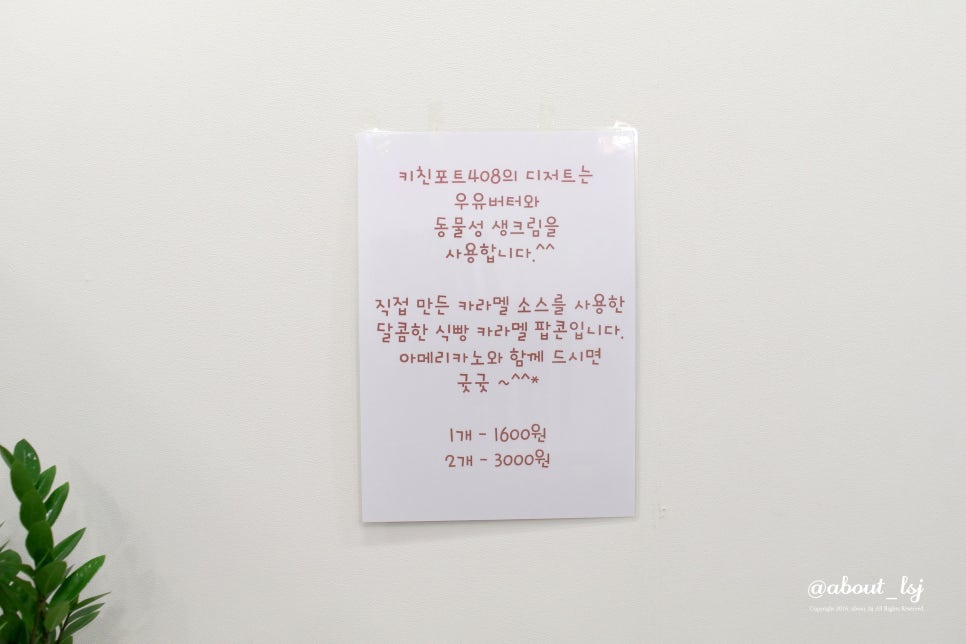 키친포트408의 디저트는
우유버터와
동물성 생크림을
사용합니다.^^
직접 만든 카라멜 소스를 사용한
달콤한 식빵 카라멜 팝콘입니다.
아메리카노와 함께 드시면
굿굿 ~^^*
1개 - 1600원
2개 - 3000원
@about_lsj
Copyright 2016. about_lsj All Rights Reserved.